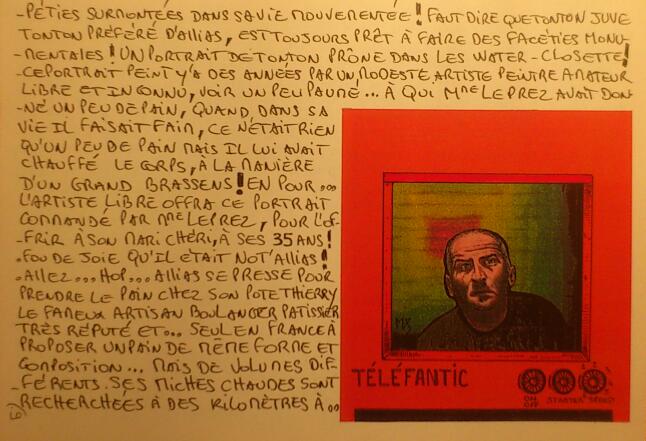 -PÉTIES SURMONTÉES DANS SA VIE MOUVEMENTÉE! FAUT DIRE QUE TONTON JUVE
TONTON PRÉFÉRÉ D'ALLIAS, EST TOUJOURS PRÊT À FAIRE DES FACÉTIES MONU-
-MENTALES! UN PORTRAIT DE TONTON PRÔNE DANS LES WATER-CLOSETTE!
-CE PORTRAIT PEINT Y'A DES ANNÉES PAR UN MODESTE ARTISTE PEINTRE AMATEUR
LIBRE ET INCONNU, VOIR UN PEU PAUMÉ... À QUI Mme LEPREZ AVAIT DON-
-NÉ UN PEU DE PAIN, QUAND, DANS SA
VIE IL FAISAIT FAIM, CE N'ÉTAIT RIEN
QU'UN PEU DE PAIN MAIS IL LUI AVAIT
CHAUFFÉ LE CORPS, À LA MANIÈRE
D'UN GRAND BRASSENS! EN POUR...
L'ARTISTE LIBRE OFFRA CE PORTRAIT
COMMANDÉ PAR Mme LEPREZ, POUR L'OF-
-FRIR À SON MARI CHÉRI, À SES 35 ANS!
-FOU DE JOIE QU'IL ÉTAIT NOT'ALLIAS!
-ALLEZ... HOP... ALLIAS SE PRESSE POUR
PRENDRE LE PAIN CHEZ SON POTE THIERRY
LE FAMEUX ARTISAN BOULANGER PATISSIER
TRÈS RÉPUTÉ ET... SEUL EN FRANCE À
PROPOSER UN PAIN DE MÊME FORME ET
COMPOSITION... MAIS DE VOLUMES DIF-
-FÉRENTS. SES MICHES CHAUDES SONT
-RECHERCHÉES À DES KILOMÈTRES À..
MX
TÉLÉFANTIC
ON
OFF
STARTER